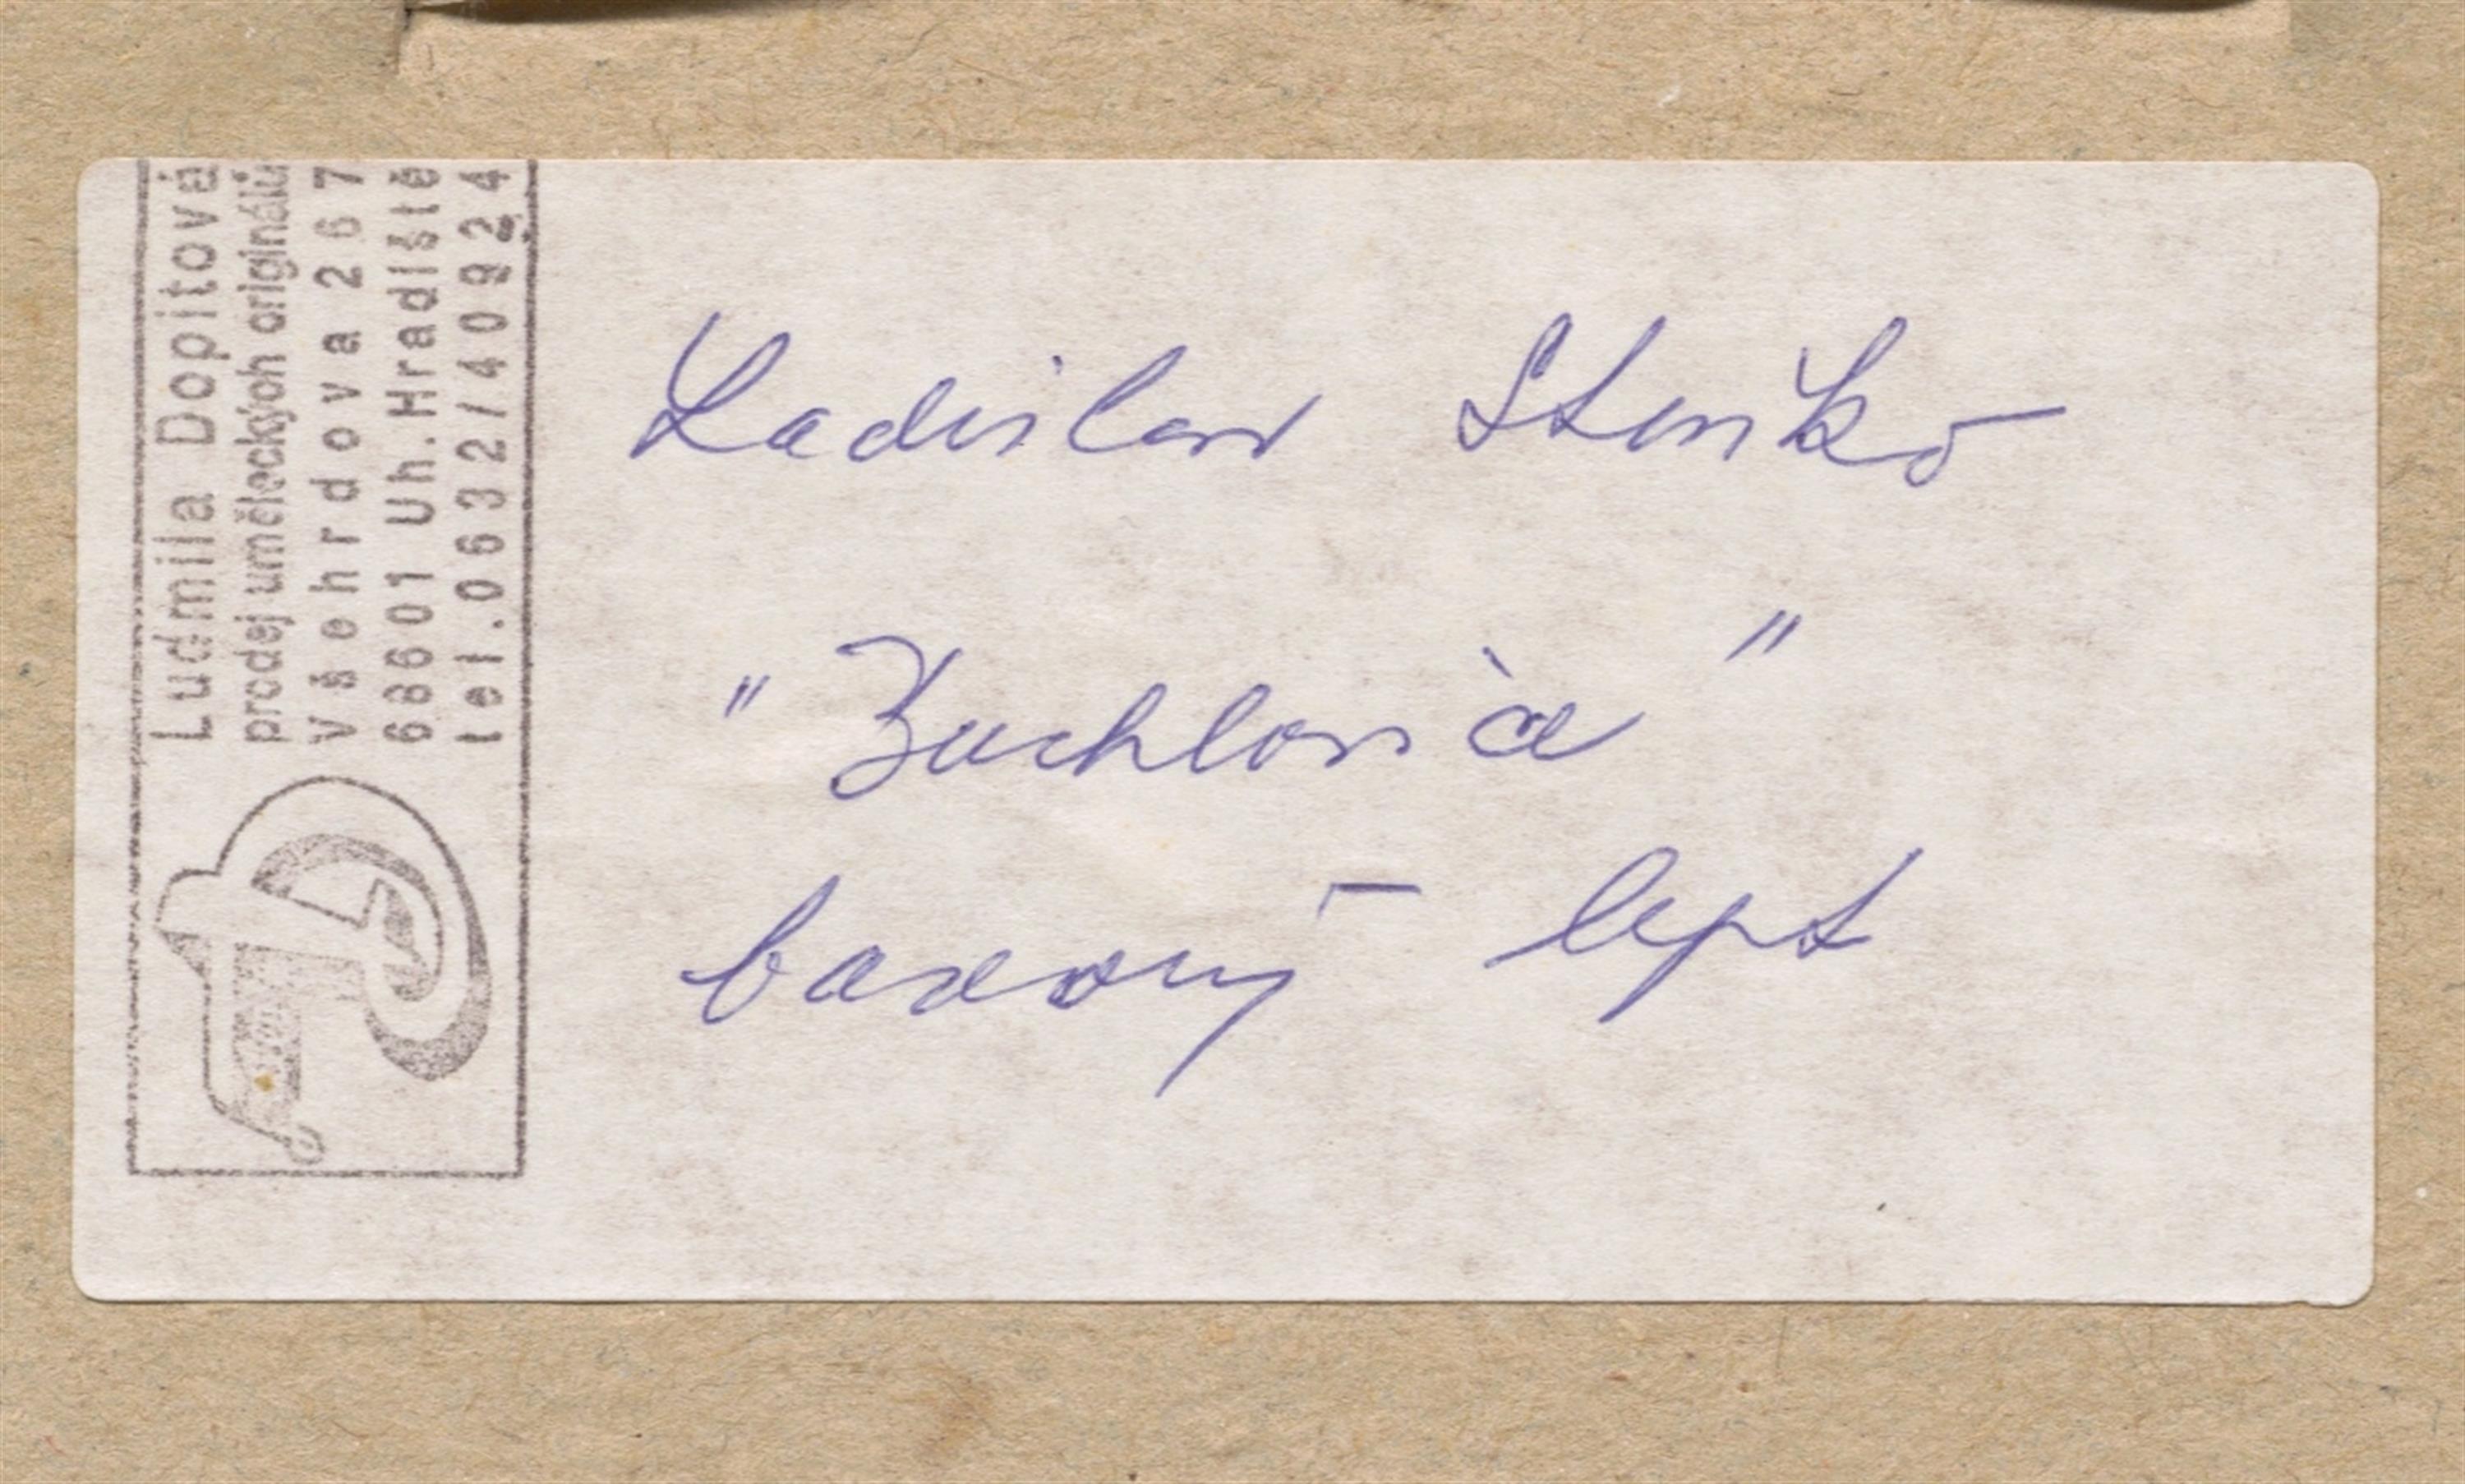 Ludmila Dopitová
prodej uměleckých originálů
Všehrdova 267
68601 Uh.Hradiště
tel.0632/40924
Ladislav
"Buchlovice"
barevný lept